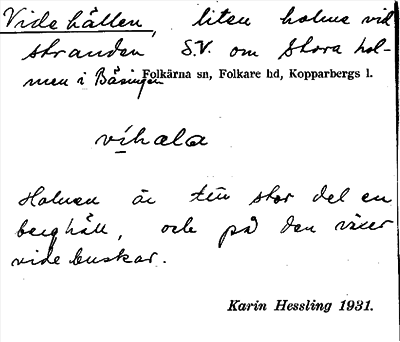 Videhällen, liten holme vid
stranden S.V. om Stora hol-
men i Bäsingen Folkärna sn, Folkare hd, Kopparbergs l.
víhala
Holmen är till stor del en
berghäll, och på den växer
videbuskar.
Karin Hessling 1931.